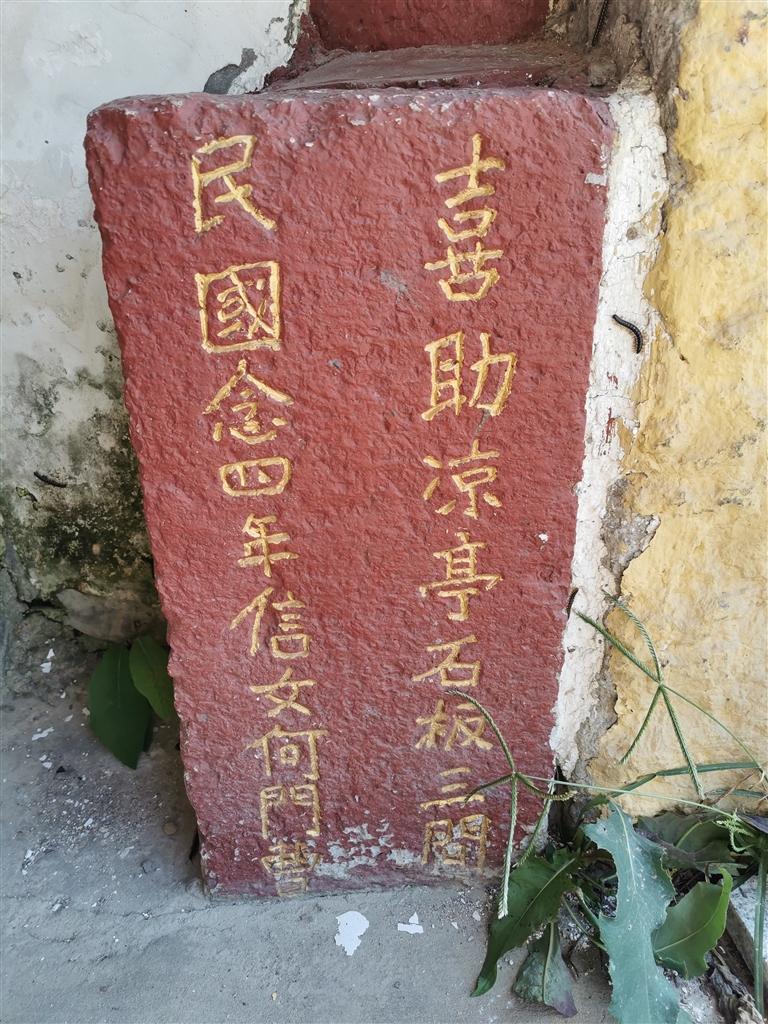 喜助凉亭石板三間
民國念四年信女何門曹